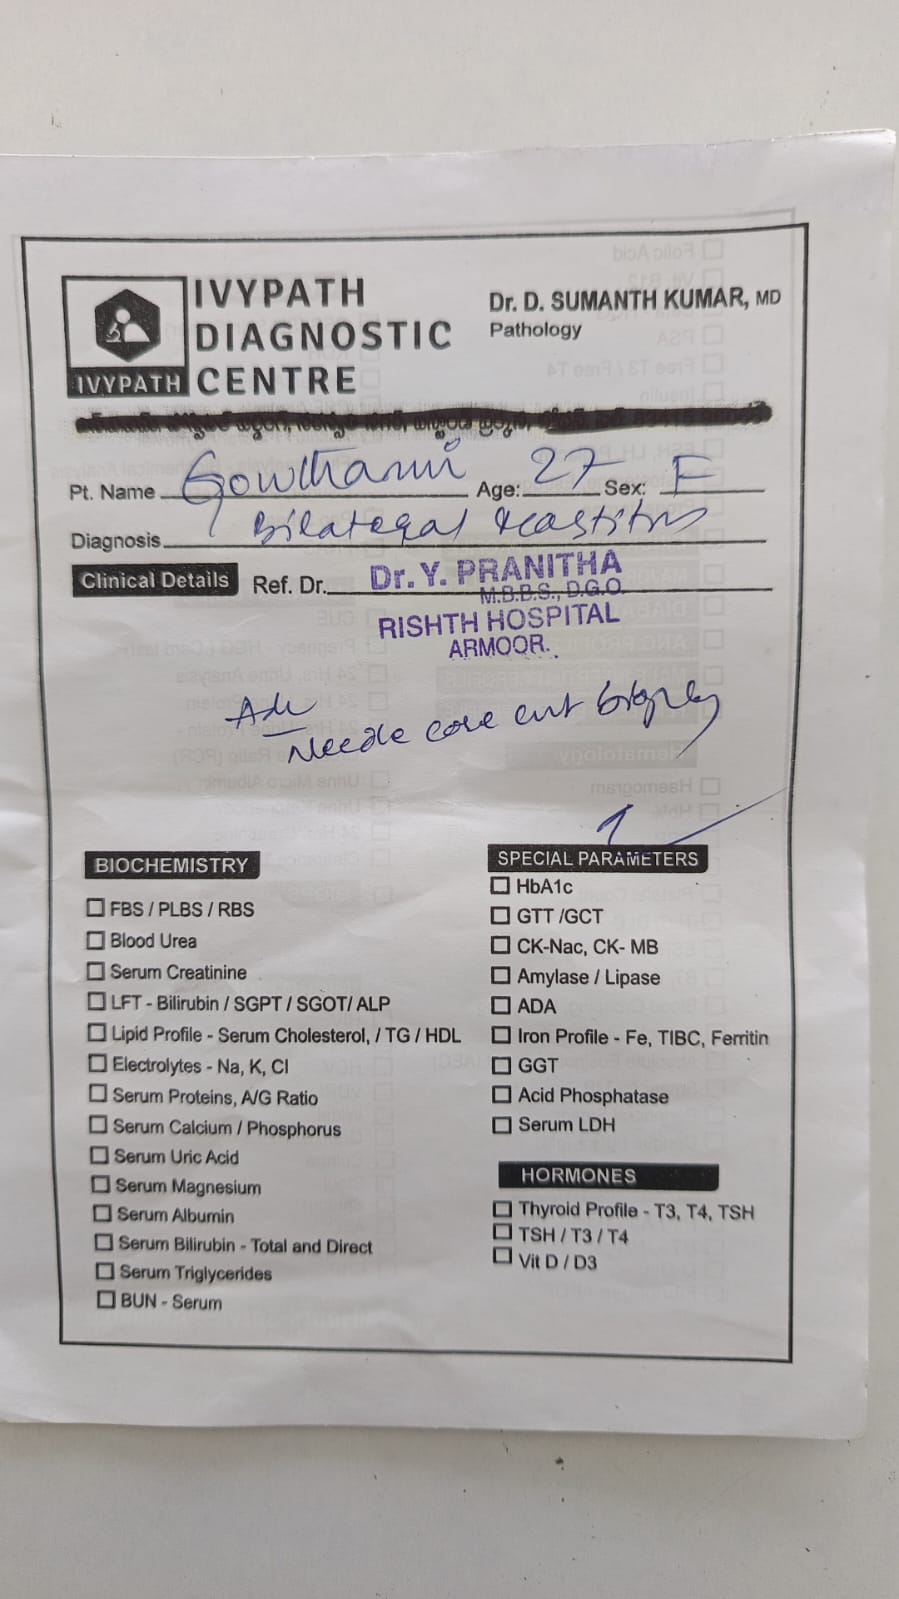 IVYPATH
DIAGNOSTIC
CENTRE
IVYPATH
Dr. D. SUMANTH KUMAR, MD
Pathology
Pt. Name Gowthami Age: 27 Sex: F
Diagnosis Bilateral Mastitis
Clinical Details Ref. Dr. Dr. Y. PRANITHA
M.B.B.S., D.G.O.
RISHTH HOSPITAL
ARMOOR.
Adv
Needle core cut biopsy
BIOCHEMISTRY
FBS / PLBS / RBS
Blood Urea
Serum Creatinine
LFT - Bilirubin / SGPT / SGOT/ ALP
Lipid Profile - Serum Cholesterol, / TG / HDL
Electrolytes - Na, K, Cl
Serum Proteins, A/G Ratio
Serum Calcium / Phosphorus
Serum Uric Acid
Serum Magnesium
Serum Albumin
Serum Bilirubin - Total and Direct
Serum Triglycerides
BUN - Serum
SPECIAL PARAMETERS
HbA1c
GTT /GCT
CK-Nac, CK- MB
Amylase / Lipase
ADA
Iron Profile - Fe, TIBC, Ferritin
GGT
Acid Phosphatase
Serum LDH
HORMONES
Thyroid Profile - T3, T4, TSH
TSH / T3 / T4
Vit D / D3